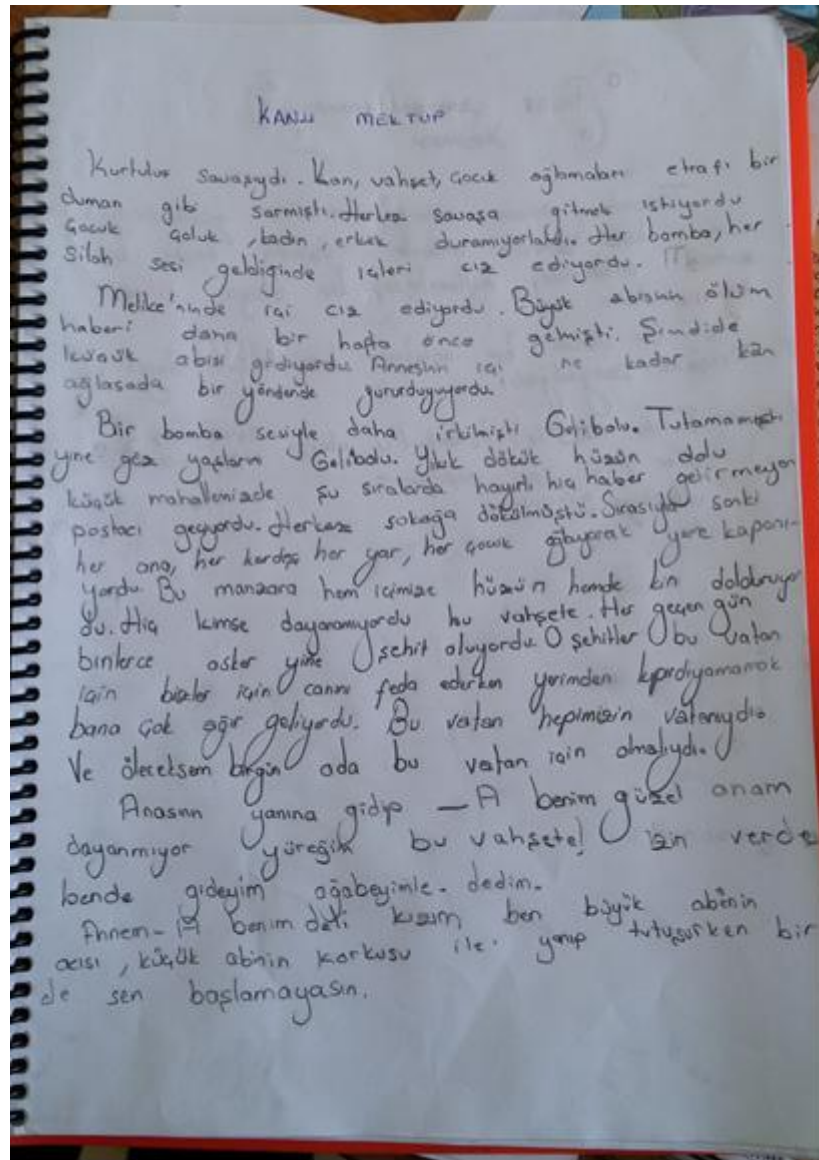 KANLI MEKTUP
Kurtuluş Savaşıydı. Kan, vahşet, çocuk ağlamaları etrafı bir
duman gibi sarmıştı. Herkes savaşa gitmek istiyordu
Çocuk çoluk, kadın, erkek duramıyorlardı. Her bomba, her
silah sesi geldiğinde içleri cız ediyordu.
Melike'ninde içi cız ediyordu. Büyük abisinin ölüm
haberi daha bir hafta önce gelmişti. Şimdide
küçük abisi gidiyordu. Annesinin içi ne kadar kan
ağlasada bir yöndende gururduyuyordu.
Bir bomba sesiyle daha irkilmişti Gelibolu. Tutamamıştı
yine göz yaşların Gelibolu. Yıkık dökük hüzün dolu
küçük mahallemizde şu sıralarda hayırlı hiç haber getirmeyen
postacı geçiyordu. Herkes sokağa dökülmüştü. Sırasıyla sanki
her ana, her kardeş her yar, her çocuk ağlayarak yere kapanı-
yordu. Bu manzara hem içimize hüzün hemde kin dolduruyor
du. Hiç kimse dayanamıyordu bu vahşete. Her geçen gün
binlerce asker yine şehit oluyordu. O şehitler bu vatan
için bizler için canını feda ederken yerimden kıpırdıyamamak
bana çok ağır geliyordu. Bu vatan hepimizin vatanıydı.
Ve öleceksem birgün oda bu vatan için olmalıydı.
Anasının yanına gidip — A benim güzel anam
dayanmıyor yüreğim bu vahşete! izin verde
bende gideyim ağabeyimle. dedim.
Annem - A benim deli kızım ben büyük abinin
acısı, küçük abinin korkusu ile yanıp tutuşurken bir
de sen başlamayasın.